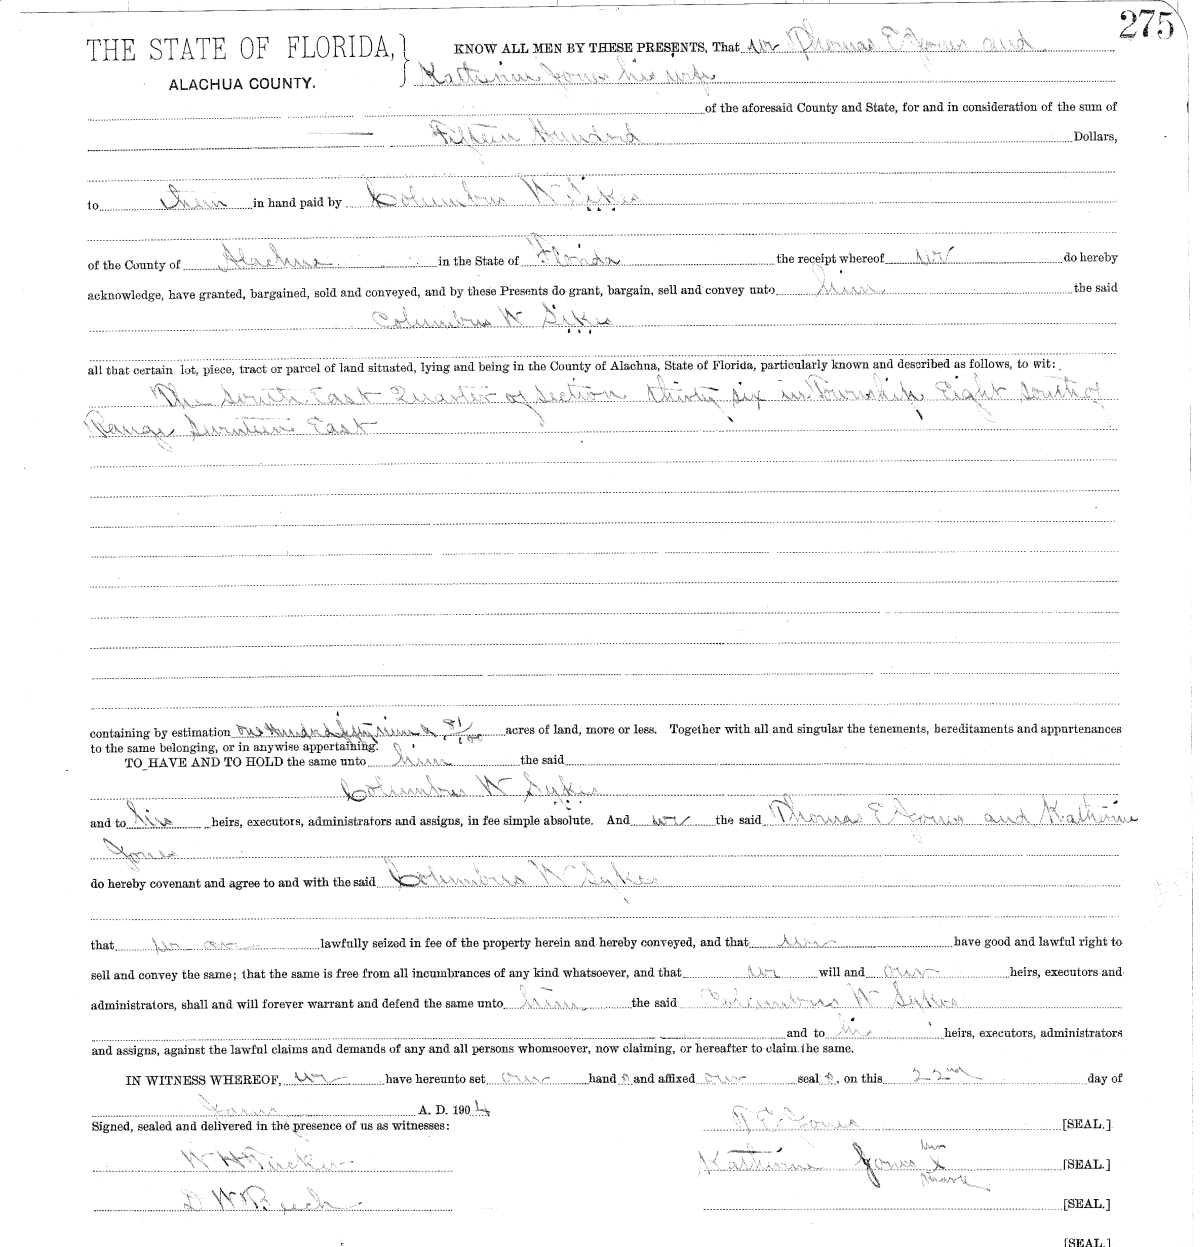 275
THE STATE OF FLORIDA, } KNOW ALL MEN BY THESE PRESENTS, That we Thomas E Jones and
ALACHUA COUNTY. Katherine Jones his wife
of the aforesaid County and State, for and in consideration of the sum of
Fifteen Hundred Dollars,
to them in hand paid by Columbus W Sikes
of the County of Alachua in the State of Florida the receipt whereof we do hereby
acknowledge, have granted, bargained, sold and conveyed, and by these Presents do grant, bargain, sell and convey unto him the said
Columbus W Sikes
all that certain lot, piece, tract or parcel of land situated, lying and being in the County of Alachua, State of Florida, particularly known and described as follows, to wit:
The South East Quarter of Section thirty six in Township Eight South of
Range Seventeen East
containing by estimation One Hundred fifty nine & 81/100 acres of land, more or less. Together with all and singular the tenements, hereditaments and appurtenances
to the same belonging, or in anywise appertaining.
TO HAVE AND TO HOLD the same unto him the said
Columbus W Sykes
and to his heirs, executors, administrators and assigns, in fee simple absolute. And we the said Thomas E Jones and Katherine
Jones
do hereby covenant and agree to and with the said Columbus W Sykes
that we are lawfully seized in fee of the property herein and hereby conveyed, and that we have good and lawful right to
sell and convey the same; that the same is free from all incumbrances of any kind whatsoever, and that we will and our heirs, executors and
administrators, shall and will forever warrant and defend the same unto him the said Columbus W Sykes
and to his heirs, executors, administrators
and assigns, against the lawful claims and demands of any and all persons whomsoever, now claiming, or hereafter to claim the same.
IN WITNESS WHEREOF, we have hereunto set our hand s and affixed our seal s, on this 22nd day of
A. D. 1904
Signed, sealed and delivered in the presence of us as witnesses: T E Jones [SEAL.]
her
W H Tucker Katherine Jones X [SEAL.]
mark
D W Beech [SEAL.]
[SEAL.]